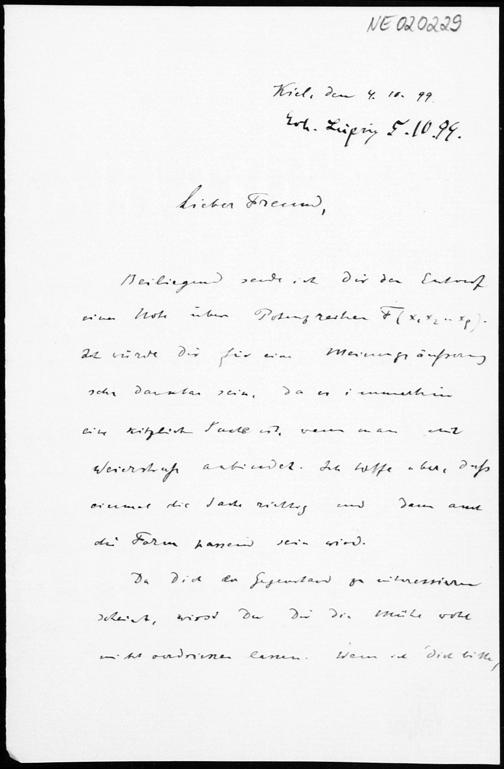 NE020229
Kiel, den 4. 10. 99.
Erh. Leipzig 5.10.99.
Lieber Freund,
Beiliegend sende ich Dir den Entwurf
einer Note über Potenzreihen F(x₁ x₂ .. xₚ).
Ich würde Dir für eine Meinungsäußerung
sehr dankbar sein, da es immerhin
eine kitzliche Sache ist, wenn man mit
Weierstraß anbindet. Ich hoffe aber, daß
einmal die Sache richtig und dann auch
die Form passend sein wird.
Da Dich der Gegenstand zu interessieren
scheint, wirst Du Dir die Mühe wohl
nicht verdriessen lassen. Wenn ich Dich bitte,